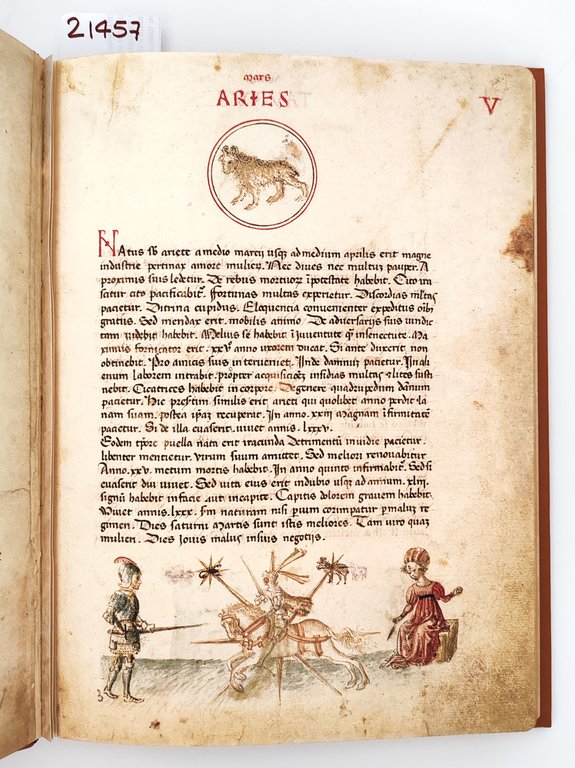 21457
Mars
ARIES
V
NAtus sb ariete a medio marcij usq; ad medium aprilis erit magne
industrie pertinax amore mulieru. Nec dives nec multu pauper. A
proximis suis ledetur. De rebus mortuor ipotestate habebit. Cito ira
scitur cito pacificabit. Fortunas multas experietur. Discordias mltas
pacietur. Ditrina cupidus. Eloquencia convenienter expeditus oibus
gratus. Sed mendax erit. mobilis animo. De adversarijs suis vindic
tam habebit. Melius se habebit i iuventute q insenectute. Ma
ximus fornicator erit. xxv anno uxorem ducat. Si ante duxerit non
obtinebit. Pro amicis suis interveniet. Inde damnu pacietur. In ali
enum laborem intrabit. propter acquisicoes insidias multas & lites susti
nebit. Cicatrices habebit in corpore. De genere quadrupedum danum
pacietur. Hic prestim similis erit arieti qui quolibet anno perdit la
nam suam. postea ipaz recuperat. In anno. xxiij magnam ifirmitate
pacietur. Si de illa evaserit. vivet annis. lxxxv.
Eodem tpore puella nata erit iracunda Detrimentu invidie pacietur.
libenter mentietur. virum suum amittet. Sed meliori renovabitur
Anno. xxv. metum mortis habebit. In anno quinto infirmabit. Sed si
evaserit diu vivet. Sed vita eius erit indubio usq; ad annum. xliij.
signu habebit infacie aut incapite. Capitis dolorem gravem habebit
Vivet annis. lxxx. Sm naturam nisi pvium corimpatur pmaluz re
gimen. Dies saturni Martis sunt istis meliores. Tam viro quaz
mulieri. Dies Jovis malus insuis negotijs.